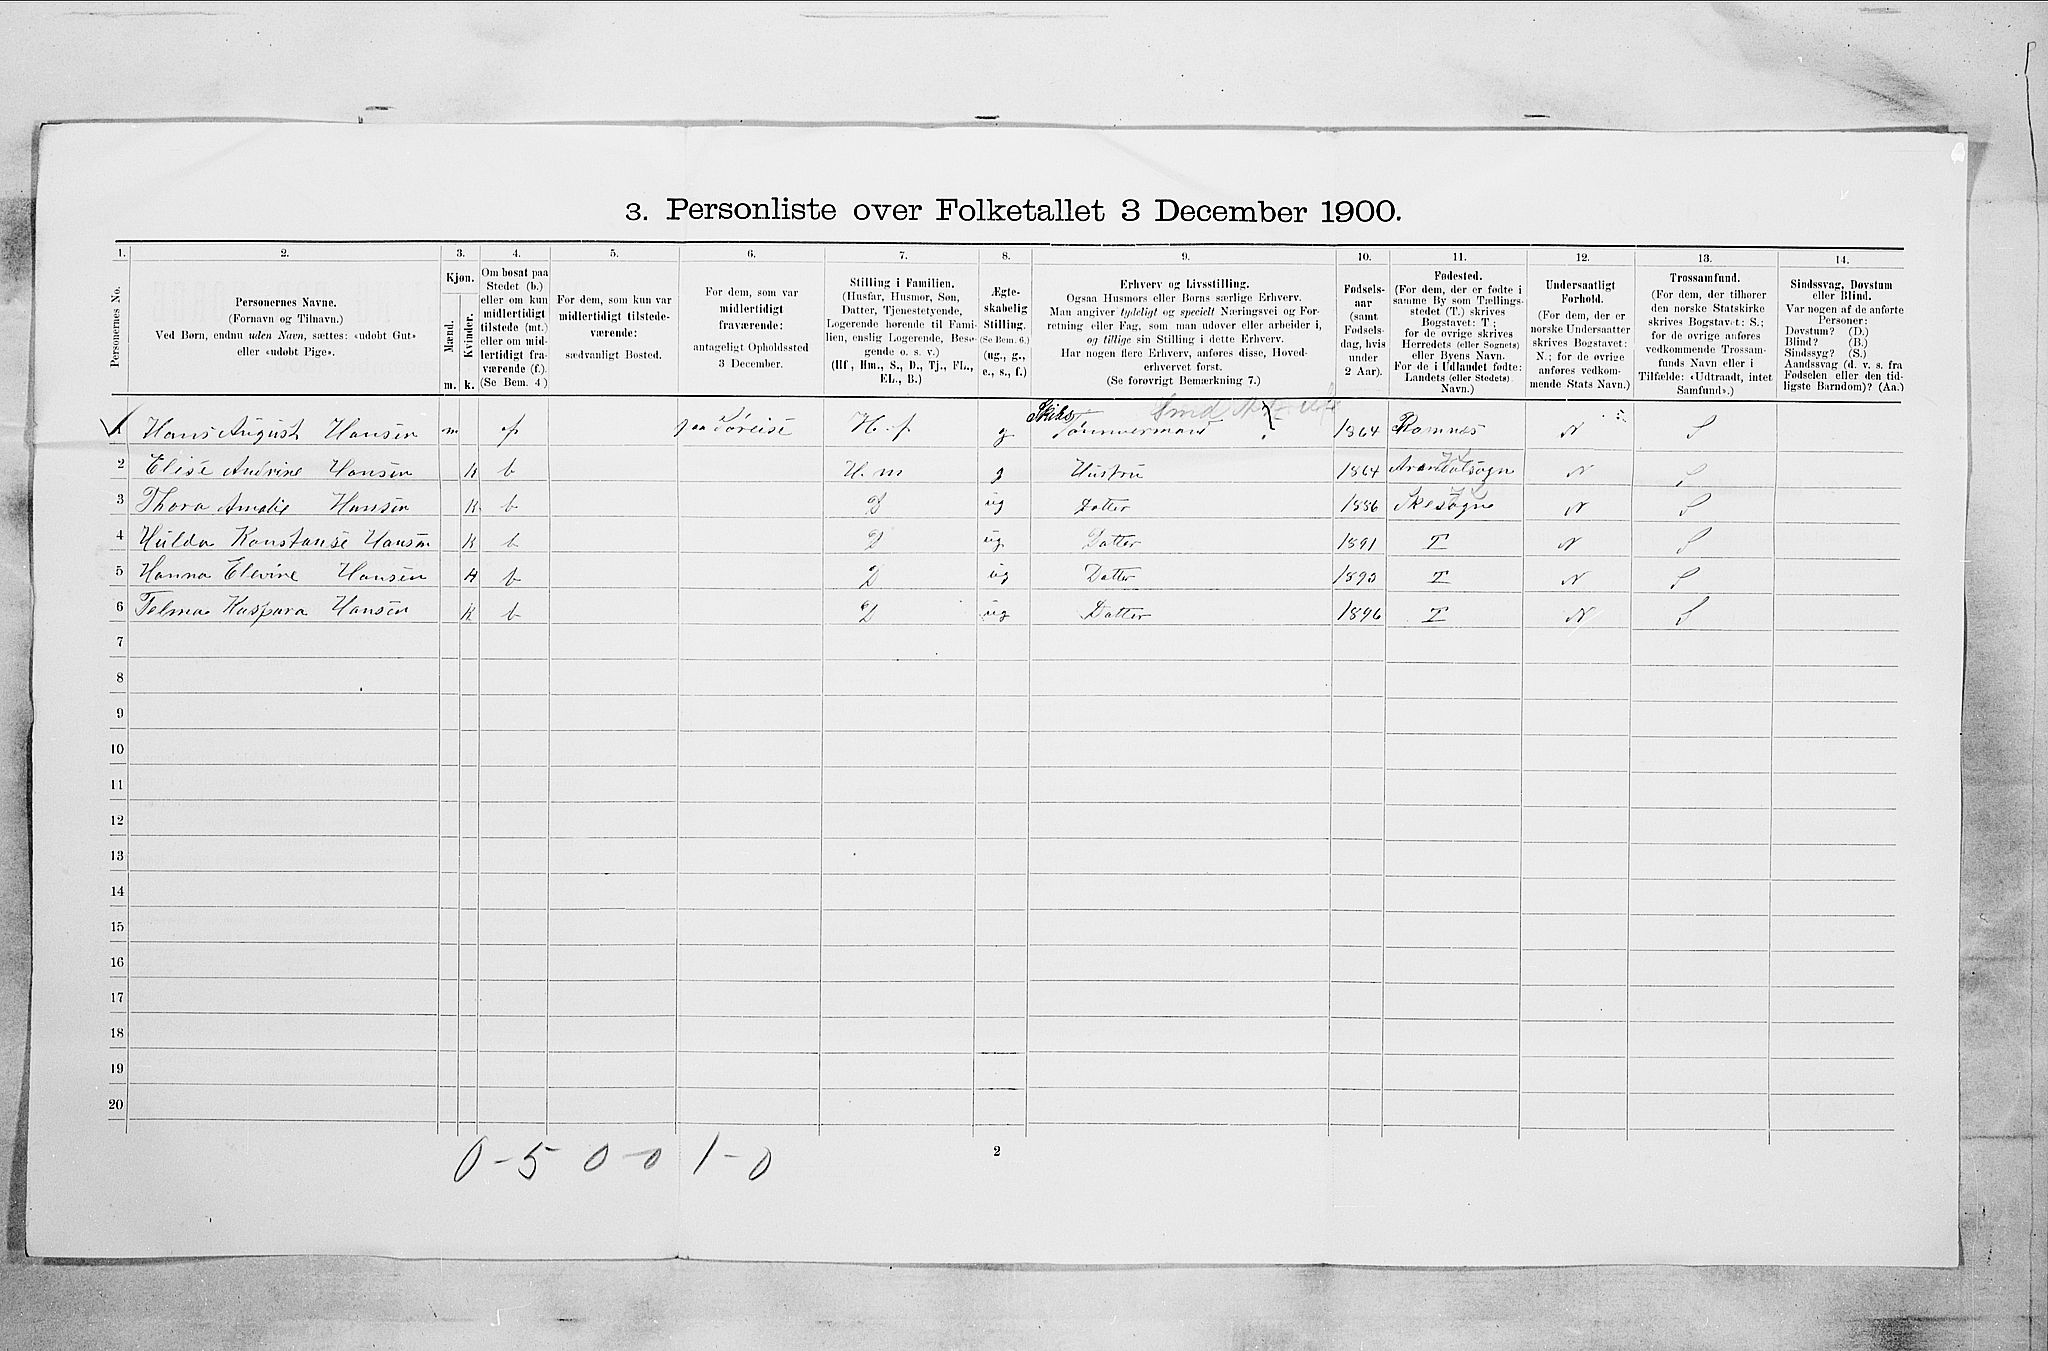 3. Personliste over Folketallet 3 December 1900.
1. 2. 3. 4. 5. 6. 7. 8. 9. 10. 11. 12. 13. 14.
Personernes No.
Personernes Navne.
(Fornavn og Tilnavn.)
Ved Børn, endnu uden Navn, sættes: «udøbt Gut»
eller «udøbt Pige».
Kjøn.
Mænd.
Kvinder.
m. k.
Om bosat paa
Stedet (b.)
eller om kun
midlertidigt
tilstede (mt.)
eller om mid-
lertidigt fra-
værende (f.).
(Se Bem. 4)
For dem, som kun var
midlertidigt tilstede-
værende:
sædvanligt Bosted.
For dem, som var
midlertidigt
fraværende:
antageligt Opholdssted
3 December.
Stilling i Familien.
(Husfar, Husmor, Søn,
Datter, Tjenestetyende,
Logerende hørende til Fami-
lien, enslig Logerende, Besø-
gende o. s. v.)
(Hf, Hm., S., D., Tj., FL.,
EL., B.)
Ægte-
skabelig
Stilling.
(Se Bem. 6.)
(ug., g.,
e., s., f.)
Erhverv og Livsstilling.
Ogsaa Husmors eller Børns særlige Erhverv.
Man angiver tydeligt og specielt Næringsvei og For-
retning eller Fag, som man udøver eller arbeider i,
og tillige sin Stilling i dette Erhverv.
Har nogen flere Erhverv, anføres disse, Hoved-
erhvervet først.
(Se forøvrigt Bemærkning 7.)
Fødsels-
aar
(samt
Fødsels-
dag, hvis
under
2 Aar).
Fødested.
(For dem, der er fødte i
samme By som Tællings-
stedet (T.) skrives
Bogstavet: T.;
for de øvrige skrives
Herredets (eller Sognets)
eller Byens Navn.
For de i Udlandet fødte:
Landets (eller Stedets)
Navn.)
Undersaatligt
Forhold.
(For dem, der er
norske Undersaatter
skrives Bogstavet:
N.; for de øvrige
anføres vedkom-
mende Stats Navn.)
Trossamfund.
(For dem, der tilhører
den norske Statskirke
skrives Bogstavet: S.;
for de øvrige anføres
vedkommende Trossam-
funds Navn eller i
Tilfælde: «Udtraadt, intet
Samfund».)
Sindssvag, Døvstum
eller Blind.
Var nogen af de anførte
Personer:
Døvstum? (D.)
Blind? (B.)
Sindssyg? (S.)
Aandssvag (d. v. s. fra
Fødselen eller den tid-
ligste Barndom)? (Aa.)
1 Hans August Hansen m f paa Søreise H. f g Skibs Tømmermand 1864 Ramnes N S
2 Elise Andrine Hansen K b H. m g Hustru 1864 N S
3 Thora Amalie Hansen K b D ug Datter 1886 N S
4 Hulda Konstanse Hansen K b D ug Datter 1891 T N S
5 Hanna Elevine Hansen K b D ug Datter 1893 T N S
6 Telma Kaspara Hansen K b D ug Datter 1896 T N S
7
8
9
10
11
12
13
14
15
16
17
18
19
20
0-5 0-0 1-0
2